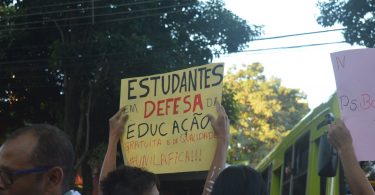 ESTUDANTES
EM DEFESA DA
EDUCAÇÃO
GRATUITA E DE QUALIDADE
#UNILAFICA!!!
N
PSiB